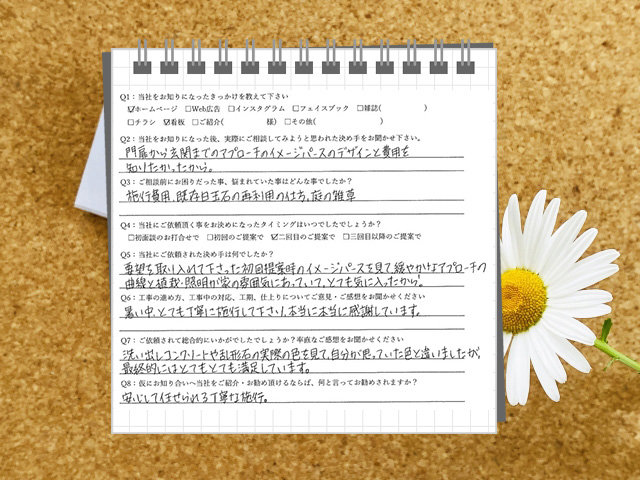 Q1：当社をお知りになったきっかけを教えて下さい
☑ホームページ　□Web広告　□インスタグラム　□フェイスブック　□雑誌(　　　　　)
□チラシ　☑看板　□ご紹介(　　　　　様)　□その他(　　　　　　　　)
Q2：当社をお知りになった後、実際にご相談してみようと思われた決め手をお聞かせ下さい。
門扉から玄関までのアプローチのイメージパースのデザインと費用を
知りたかったから。
Q3：ご相談前にお困りだった事、悩まれていた事はどんな事でしたか？
施行費用、既存白玉石の再利用の仕方、庭の雑草
Q4：当社にご依頼頂く事をお決めになったタイミングはいつでしたでしょうか？
□初面談のお打合せで　□初回のご提案で　☑二回目のご提案で　□三回目以降のご提案で
Q5：当社にご依頼された決め手は何でしたか？
要望を取り入れて下さった初回提案時のイメージパースを見て、緩やかなアプローチの
曲線と植栽・照明が家の雰囲気にあっていて、とても気に入ったから。
Q6：工事の進め方、工事中の対応、工期、仕上りについてご意見・ご感想をお聞かせください
暑い中、とても丁寧に施行して下さり、本当に本当に感謝しています。
Q7：ご依頼されて総合的にいかがでしたでしょうか？率直なご感想をお聞かせください
洗い出しコンクリートや乱形石の実際の色を見て、自分が思っていた色と違いましたが、
最終的にはとてもとても満足しています。
Q8：仮にお知り合いへ当社をご紹介・お勧め頂けるならば、何と言ってお勧めされますか？
安心して任せられる丁寧な施行。